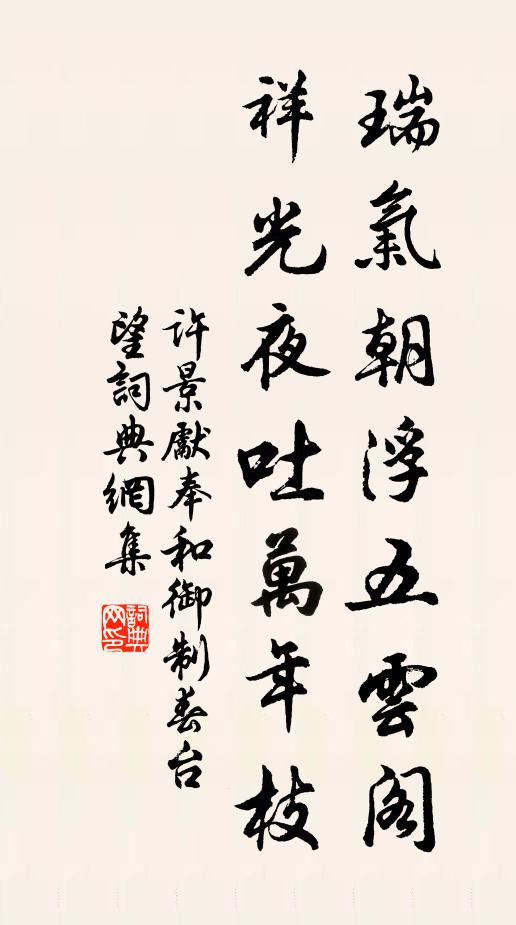 瑞氣朝浮五雲閣
祥光夜吐萬年枝
許景獻奉和御制春台
望詞典網集
詞典
网印